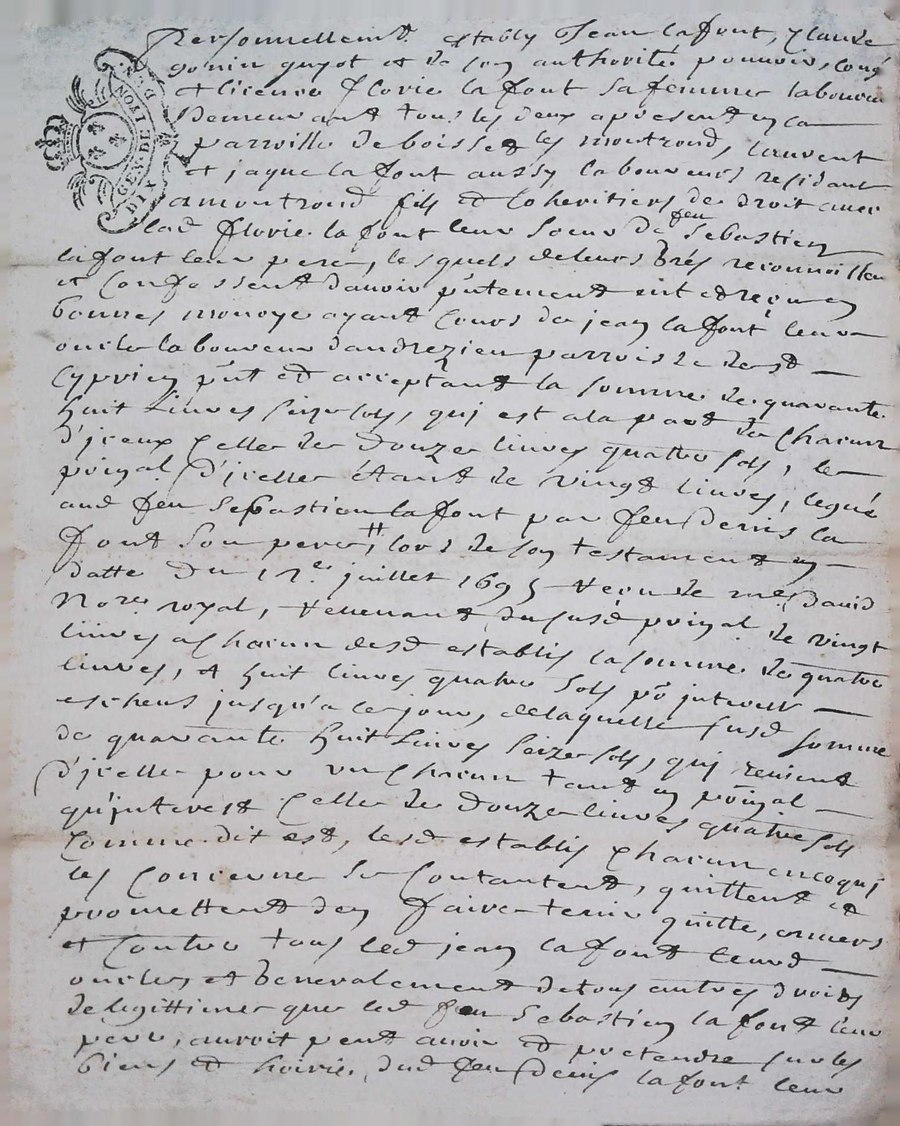 Personnellemt establis Jean la font, Claude
gonin guyot et de son authorité pouvoir, congé
et licence florie la font sa femme laboureur
Demeurant tous les deux apresent en la
parroisse de boisset les montrond, laurent
et jaque la font aussy laboureurs residant
a montrond fils et coheritiers de droit avec
lad florie la font leur soeur de feu sebastien
la font leur pere, lesquels de leurs grés reconnoissen
et confessent d'avoir p'ntement eüt et reçu en
bonnes monoye ayant cours de jean la font leur
oncle laboureur d'andrezieu parroisse de st
Cyprien p'nt et acceptant la somme de quarante
huit livres seize sols, qui est a la part de chacun
d'iceux celle de douze livres quatre sols, le
prinpal d'icelle étant de vingt livres, legué
aud feu sebastien la font par feu denis la
font son pere, lors de son testament en
datte du 17e juillet 1695 reçu de me david
Nore royal, revenant du susd prinpal de vingt
livres a chacun desd establis la somme de quatre
livres, et huit livres quatre sols po interest
escheus jusqu'a ce jour, de laquelle susd somme
de quarante huit livres seize sols, qui revient
d'icelle pour un chacun tant en prinpal
qu'interest celle de douze livres quatre sols
comme dit est, lesd establis chacun en ce qui
les concerne se contantent, quittent et
promettent d'en faire tenir quitte, envers
et contre tous led jean la font leurd
oncle, et generalement de tous autres droits
de legittime que led feu sebastien la font leur
pere, auroit peut avoir et pretendre sur les
biens et hoirie dud feu denis la font leur
GEN. DE LYON
DIX